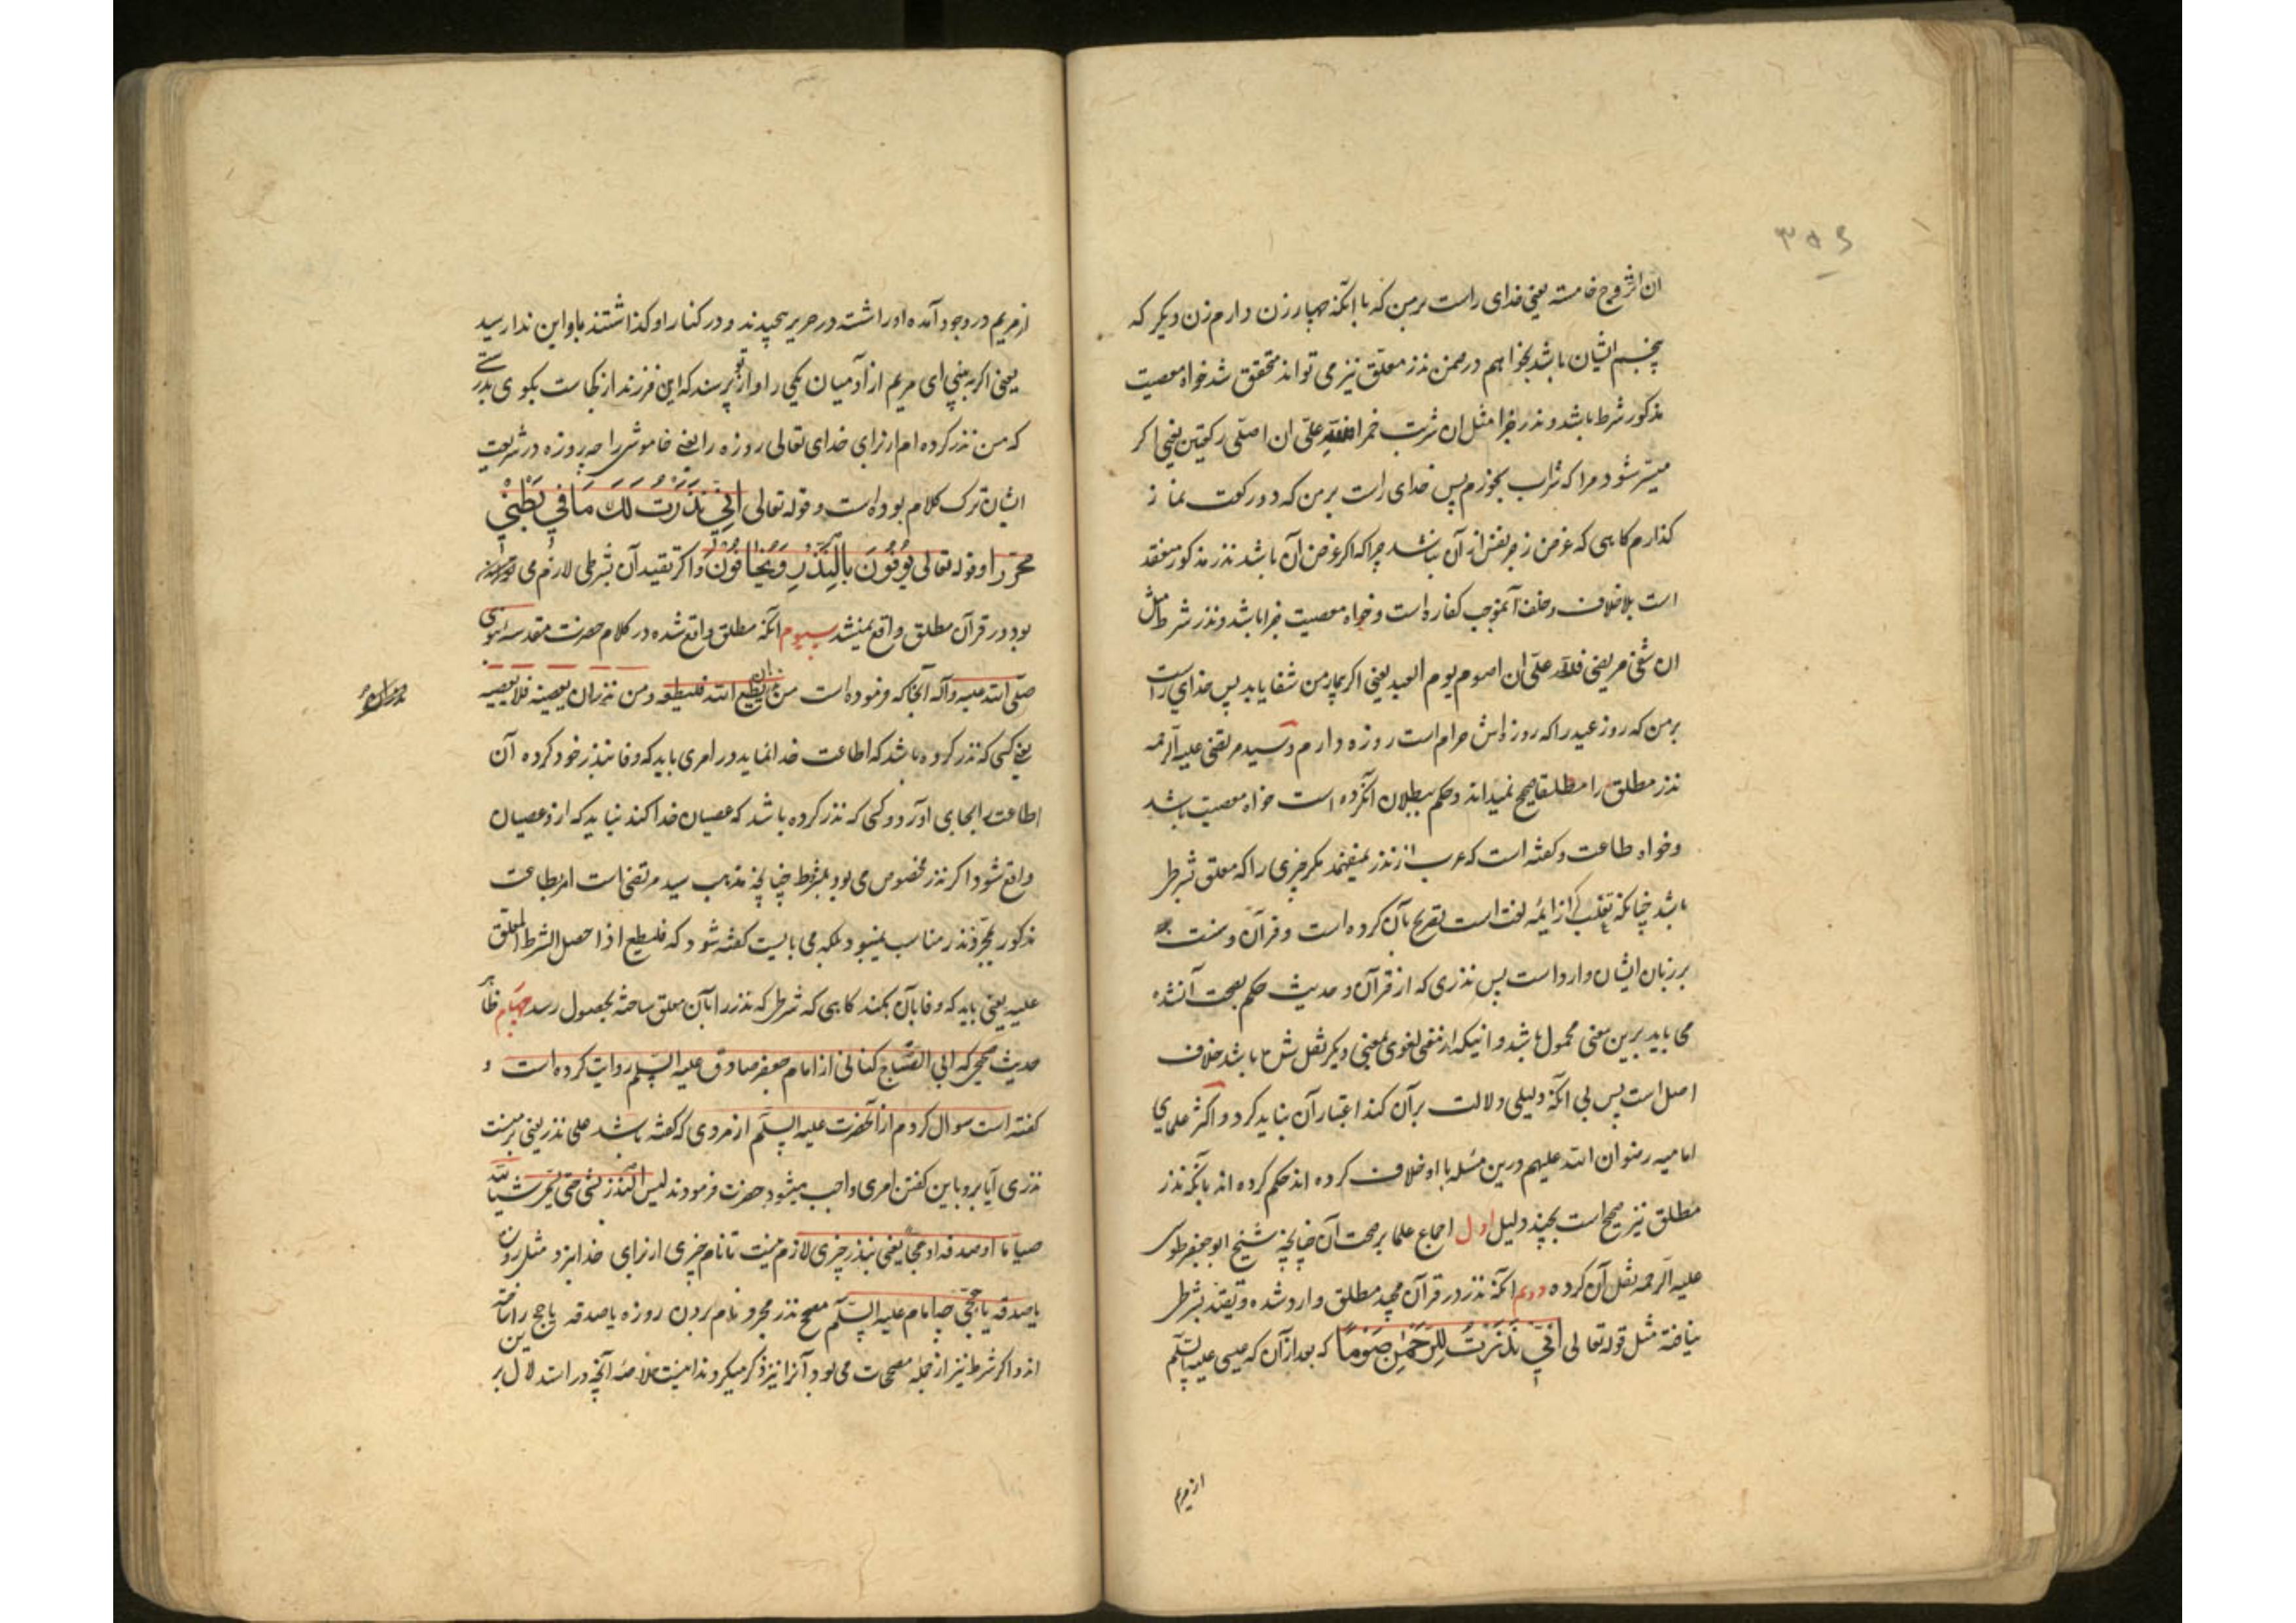 ۳۵۶
ان اتزوج خامسة یعنی خدای راست برمن که با آنکه چهار زن دارم زن دیکر که
پنجم ایشان باشد بخواهم در ضمن نذر معلق نیز می تواند محقق شد خواه معصیت
مذکور شرط باشد و نذر جزا مثل ان شربت خمرا فلله علی ان اصلی رکعتین یعنی اکر
میسر شود مرا که شراب بخورم پس خدای راست برمن که دو رکعت نماز
کذارم کاهی که غرض زجر نفس از آن نباشد چرا که اکر غرض آن باشد نذر مذکور منعقد
است بلا خلاف و خلف آنموجب کفاره است و خواه معصیت جزا باشد و نذر شرط مثل
ان شفی مریضی فلله علی ان اصوم یوم العید یعنی اکر بیمار من شفا یابد پس خدای راست
برمن که روز عید را که روزه اش حرام است روزه دارم و سید مرتضی علیه الرحمه
نذر مطلق را مطلقا صحیح نمیداند و حکم ببطلان آنکرده است خواه معصیت باشد
وخواه طاعت وکفته است که عرب از نذر نمیفهمد مکر چیزی را که معلق بشرط
باشد چنانکه ثعلب که از ایمه لغت است تصریح بآن کرده است و قرآن و سنت
بر زبان ایشان وارد است پس نذری که از قرآن و حدیث حکم بصحت آنشده
می باید برین معنی محمول باشد و اینکه از معنی لغوی بمعنی دیکر نقل شده باشد خلاف
اصل است پس بی آنکه دلیلی دلالت بر آن کند اعتبار آن نباید کرد و اکثر علمای
امامیه رضوان الله علیهم درین مسئله با او خلاف کرده اند حکم کرده اند بآنکه نذر
مطلق نیز صحیح است بچند دلیل اول اجماع علما بر صحت آن چنانچه شیخ ابو جعفر طوسی
علیه الرحمه نقل آن کرده دویم آنکه نذر در قرآن مجید مطلق وارد شده و تقیید بشرط
نیافته مثل قوله تعالی اِنّی نَذَرْتُ لِلرَّحْمٰنِ صَوْمًا که بعد از آن که عیسی علیه السلم
از مریم
از مریم در وجود آمده او را شت در حریر پیچیدند و در کنار او کذاشتند باو این ندا رسید
یعنی اکر به بینی ای مریم از آدمیان یکی را و از تو پرسند که این فرزند از کجاست بکوی بدرستی
که من نذر کرده ام از برای خدای تعالی روزه را یعنی خاموشی را چه روزه در شریعت
ایشان ترک کلام بوده است و قوله تعالی اِنّی نَذَرْتُ لَكَ مَا فی بَطْنی
محررا و قوله تعالی یُوفُونَ بِالنَّذْرِ وَیَخافُونَ و اکر تقیید آن بشرطی لازم می
بود در قرآن مطلق واقع نمیشد سیوم آنکه مطلق واقع شده در کلام حضرت مقدسه نبوی
صلی الله علیه وآله آنجا که فرموده است من نذر ان یطیع الله فلیطعه ومن نذر ان یعصیه فلا یعصیه
یعنی کسی که نذر کرده باشد که اطاعت خدا نماید در امری باید که وفا بنذر خود کرده آن
اطاعت را بجای آورد و کسی که نذر کرده باشد که عصیان خدا کند نباید که ازو عصیان
واقع شود اکر نذر مخصوص می بود بشرط چنانچه مذهب سید مرتضی است امر بطاعت
مذکور بمجرد نذر مناسب نمیبود بلکه می بایست کفته شود که فلیطع اذا حصل الشرط المعلق
علیه یعنی باید که وفا بآن بکند کاهی که شرط که نذر را بآن معلق ساخته بحصول رسد چهارم ظاهر
حدیث صحیح که ابی الصباح کنانی از امام جعفر صادق علیه السلم روایت کرده است و
کفته است سوال کردم از آنحضرت علیه السلم از مردی که کفته باشد علی نذر یعنی بر منست
نذری آیا برو باین کفتن امری واجب میشود حضرت فرمودند لیس النذر بشی حتی یسمی شیئا لله
صیاما او صدقة او حجا یعنی بنذر چیزی لازم نیست تا نام چیزی از برای خدا نبرد مثل روزه
یا صدقه یا حجی چه امام علیه السلم مصحح نذر مجرد نام بردن روزه یا صدقه یا حج را ساخته
اند و اکر شرط نیز از جمله مصححات می بود آنرا نیز ذکر میکردند اینست خلاصه آنچه در استدلال بر